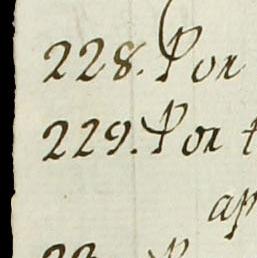 228. Por
229. Por t
ap